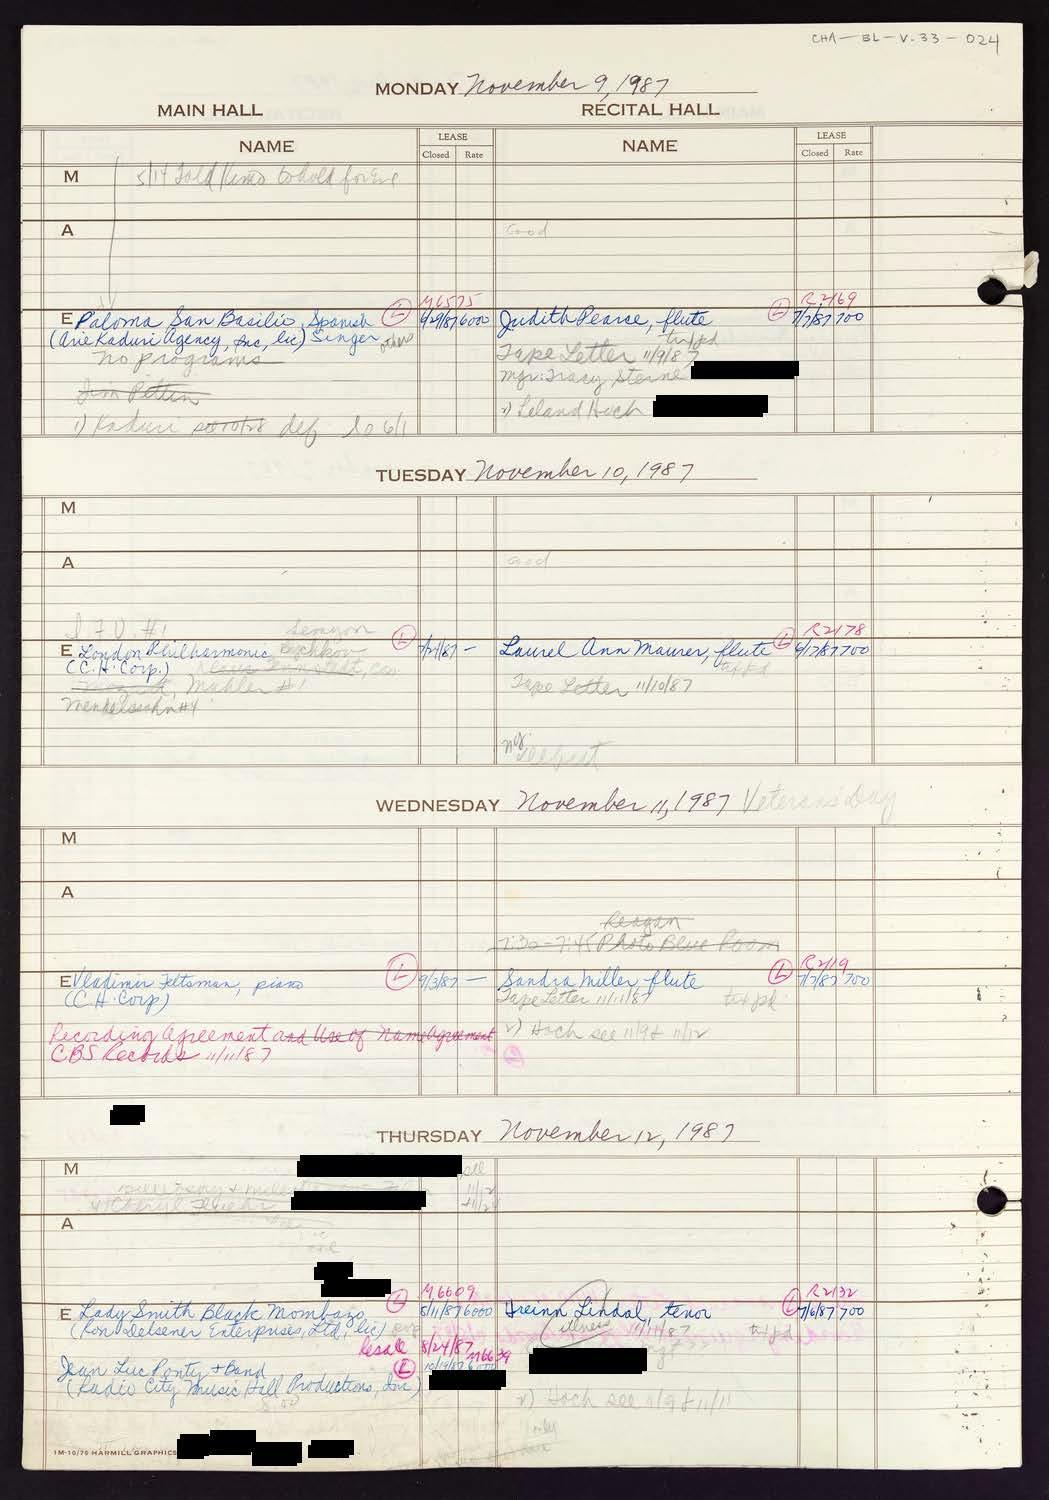 CHA-BL-V.33-024
MONDAY November 9, 1987
MAIN HALL
RECITAL HALL
NAME
LEASE
Closed Rate
NAME
LEASE
Closed Rate
M
5/14 Told to hold for Eve
A
Good
M6575
R2169
E Paloma San Basilio, Spanish (L) 9/29/87 6000
Judith Pearce, flute (L) 7/7/87 700
(Arie Kaduri Agency, Inc, lic) Singer
tax pd
No programs
Tape Letter 11/9/87
Mgr: Tracy Sterne
2) Leland Hoch
1) Kaduri def to 6/1
TUESDAY November 10, 1987
M
A
Good
I.F.V. #1
Semyon
R2178
E London Philharmonic Bychkov (L) 7/21/87 —
Laurel Ann Maurer, flute (L) 9/17/87 700
(C.H. Corp.) Klaus Tennstedt, con
tax pd
Mozart, Mahler #1
Tape Letter 11/10/87
Mendelssohn #4
WEDNESDAY November 11, 1987 Veterans Day
M
A
Reagan
7:30-7:45 Photo Blue Room
R2119
E Vladimir Feltsman, piano (L) 9/3/87 —
Sandra Miller, flute (L) 7/7/87 700
(C.H. Corp)
Tape Letter 11/11/87 tax pd
Recording Agreement and Use of Name Agreement
2) Hoch see 11/9 & 11/12
CBS Records 11/11/87
(L)
THURSDAY November 12, 1987
M
see
11/2
4) Cheryl
A
M6609
R2132
E Lady Smith Black Mombazo (L) 8/11/87 6000
Sreinn Lindal, tenor (L) 7/6/87 700
(Ron Delsener Enterprises, Ltd, lic)
illness
tax pd
Resale 8/24/87 M6639
Jean Luc Ponty + Band (L) 10/19/87 6000
(Radio City Music Hall Productions, Inc)
8:00
2) Hoch see 11/9 & 11/11
1M-10/70 HARMILL GRAPHICS